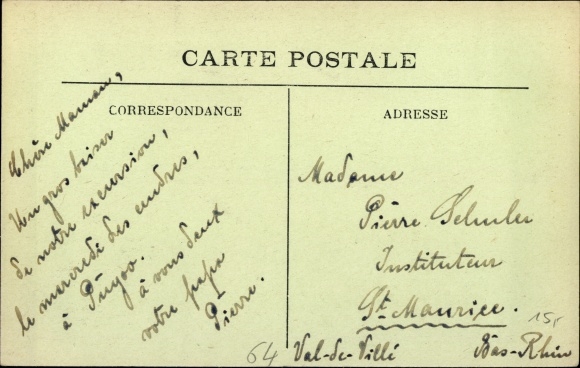 CARTE POSTALE
CORRESPONDANCE
Chère Maman,
Un gros baiser
de notre excursion,
le mercredi des cendres,
à Puyoo.
à vous deux
votre papa
Pierre.
ADRESSE
Madame
Pierre Schuler
Instituteur
St. Maurice.
Val-de-Villé
Bas-Rhin
64
15,-